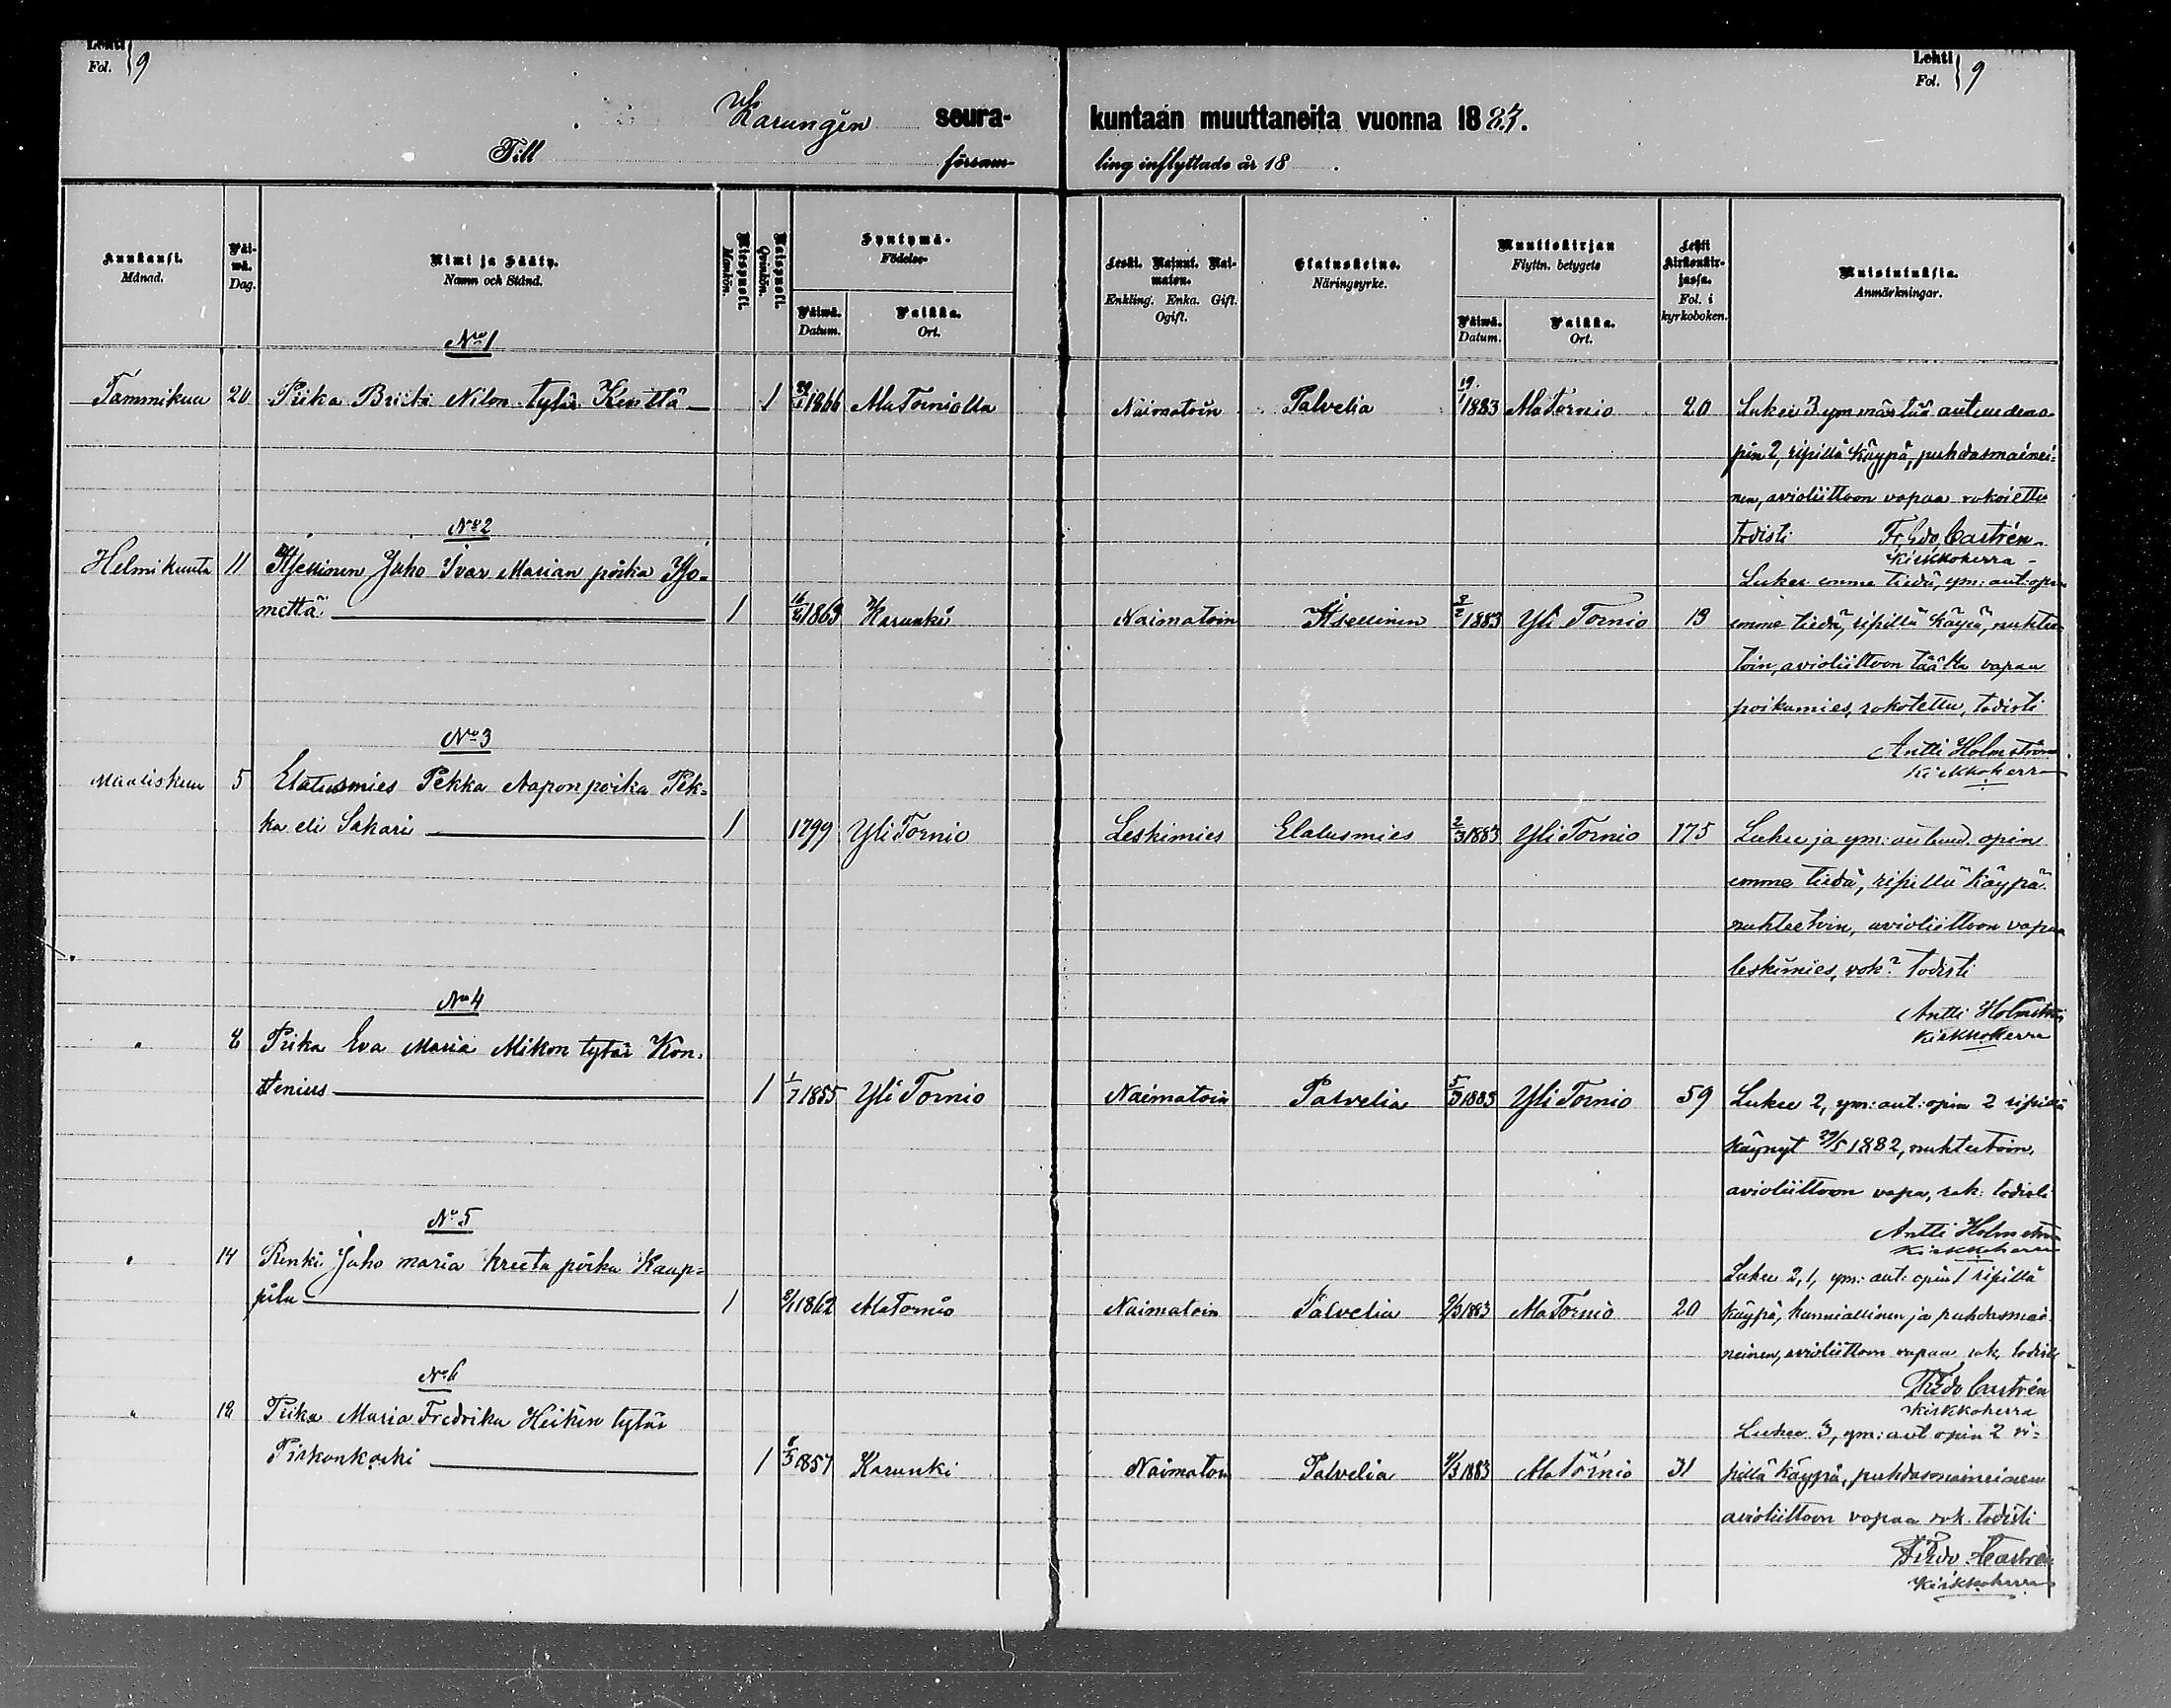 Lehti Fol. 9
Lehti Fol. 9
Karungin seurakuntaan muuttaneita vuonna 1883.
Till församling inflyttade år 18 .
Kuukausi. Månad.
Päiwä. Dag.
Nimi ja Sääty. Namn och Stånd.
Miespuoli. Mankön.
Naispuoli. Qvinkön.
Syntymä- Födelse-
Päiwä. Datum.
Paikka. Ort.
Leski. Nainut. Naimaton. Enkling. Enka. Gift. Ogift.
Elatuskeino. Näringsyrke.
Muuttokirjan Flyttn. betygets
Päiwä. Datum.
Paikka. Ort.
Lehti kirkonkirjassa. Fol. i kyrkoboken.
Muistutuksia. Anmärkningar.
No 1
Tammikuu 20 Piika Briita Nilon tytär Kenttä 1 1866 AlaTorniolla Naimatoin Palvelia 19/1 1883 AlaTornio 20 Lukee 3 ymmärtää autuudenopin 2, ripillä käypä, puhdasmainei-
nen, avioliittoon vapaa rokoiettu
todisti Fredr. Castrén
Kirkkoherra
No 2
Helmikuuta 11 Itsellinen Juho Ivar Marian poika
mettä 1 1863 Karunki Naimatoin Itsellinen 3/2 1883 Yli Tornio 19
Lukee emme tiedä, ym: aut: opin
emme tiedä, ripillä käypä, nuhtee-
toin, avioliittoon täältä vapaa
poikamies, rokotettu, todisti
Antti Holmström
Kirkkoherra
No 3
Maaliskuu 5 Elatusmies Pekka Aapon poika Pek-
ka eli Sakari 1 1799 Yli Tornio Leskimies Elatusmies 2/3 1883 Yli Tornio 175 Lukee ja ym: autuud. opin
emme tiedä, ripillä käypä
nuhteetoin, avioliittoon vapaa
leskimies, rok? todisti
Antti Holmström
Kirkkoherra
No 4
" 8 Piika Eva Maria Mikon tytär Kon-
tenius 1 1/7 1855 Yli Tornio Naimatoin Palvelia 5/3 1883 Yli Tornio 59 Lukee 2, ym: aut: opin 2 ripillä
käynyt 29/5 1882, nuhteetoin,
avioliittoon vapa, rok: todisti
Antti Holmström
Kirkkoherra
No 5
" 14 Renki Juho Maria Kreeta poika Kaup-
pila 1 1862 AlaTornio Naimatoin Palvelia 9/3 1883 AlaTornio 20
Lukee 2,1, ym: aut: opin 1 ripillä
käypä, kunniallinen ja puhdasmai-
neinen, avioliittoon vapaa rok. todisti
Fredr. Castrén
Kirkkoherra
No 6
" 18 Piika Maria Fredrika Heikin tytär
Pirkonkoski 1 1857 Karunki Naimatoin Palvelia 1883 AlaTornio 31
Lukee 3, ym: aut opin 2 ri-
pillä käypä, puhdasmaineinen
avioliittoon vapaa rok. todisti
Fredr. Castrén
Kirkkoherra